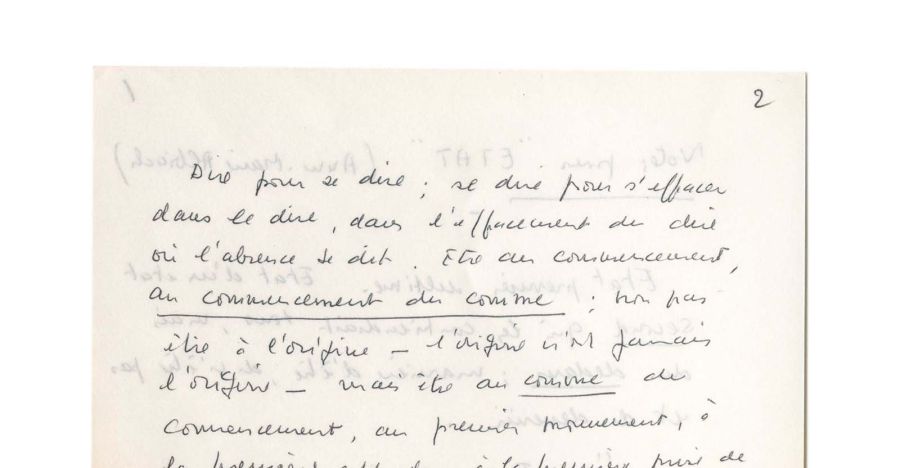 2
Dire pour se dire ; se dire pour s'effacer
dans le dire, dans l'effacement du dire
où l'absence se dit. Etre au commencement,
au commencement du comme ; non pas
être à l'origine — l'origine n'est jamais
l'origine — mais être au comme du
commencement, au premier mouvement, à
la première à la première prise de